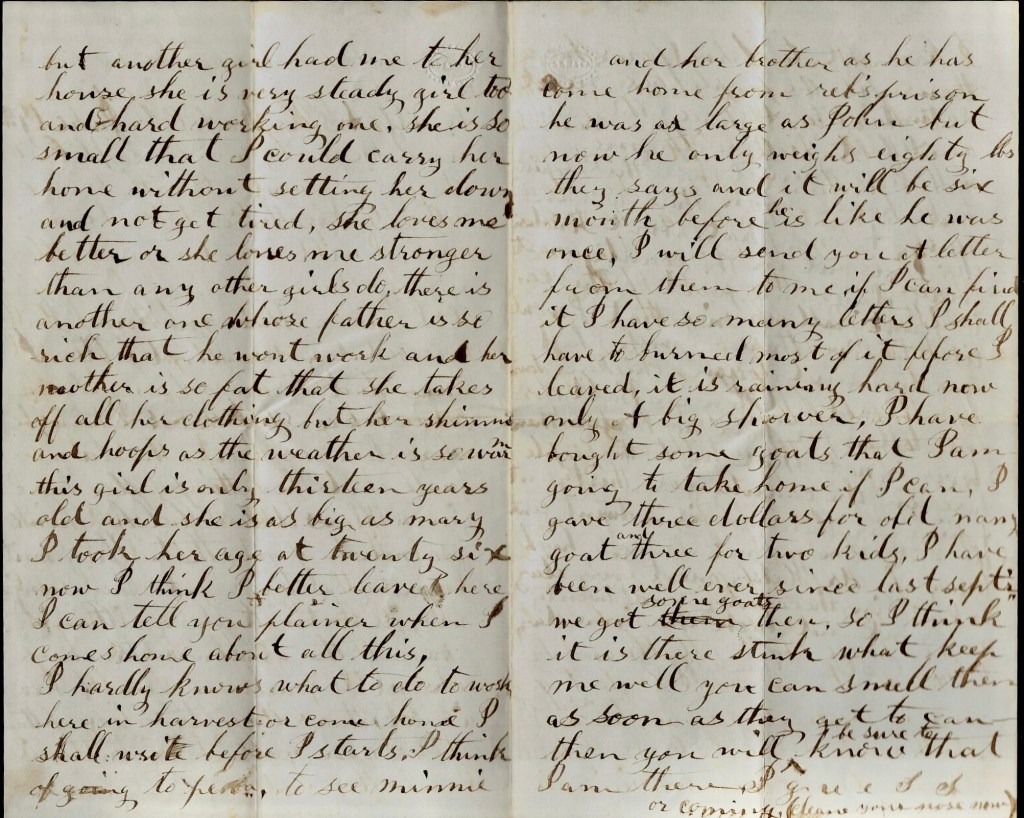 but another girl had me to her
house she is very steady girl too
and hard working one, she is so
small that I could carry her
home without setting her down
and not get tired, she loves me
better or she loves me stronger
than any other girls do, there is
another one whose father is so
rich, that he wont work and her
mother is so fat that she takes
off all her clothing but her shimmie
and hoops as the weather is so warm
this girl is only thirteen years
old and she is as big as mary
I took her age at twenty six
now I think I better leave here
I can tell you plainer when I
comes home about all this,
I hardly knows what to do to work
here in harvest or come home I
shall write before I starts, I think
of going to to see minnie
and her brother as he has
come home from reb's prison
he was as large as John but
now he only weighs eighty lbs
they says and it will be six
month before he is like he was
once, I will send you A letter
from them to me, if I can find
it I have so many letters I shall
have to burned most of it before I
leaved, it is raining hard now
only A big shower, I have
bought some goats that I am
going to take home if I can, I
gave three dollars for old nany
goat and three for two kids, I have
been well ever since last sept
we got them some goats then, so I think
it is there stink what keep
me well you can smell them
as soon as they get to can
then you will be sure to know that
I am there, I
or coming, (cleane your nose now)